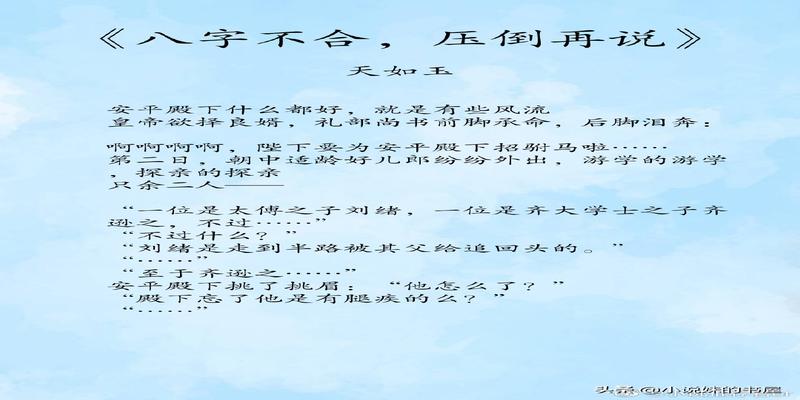 《八字不合，压倒再说》
天如玉
安平殿下什么都好，就是有些风流
皇帝欲择良婿，礼部尚书前脚承命，后脚泪奔：
啊啊啊啊，陛下要为安平殿下招驸马啦……
第二日，朝中适龄好儿郎纷纷外出，游学的游学
，探亲的探亲
只余二人——
“一位是太傅之子刘绪，一位是齐大学士之子齐
逊之，不过……”
“不过什么？”
“刘绪是走到半路被其父给追回头的。”
“……”
“至于齐逊之……”
安平殿下挑了挑眉：“他怎么了？”
“殿下忘了他是有腿疾的么？”
“……”
头条 @小说妹的书屋